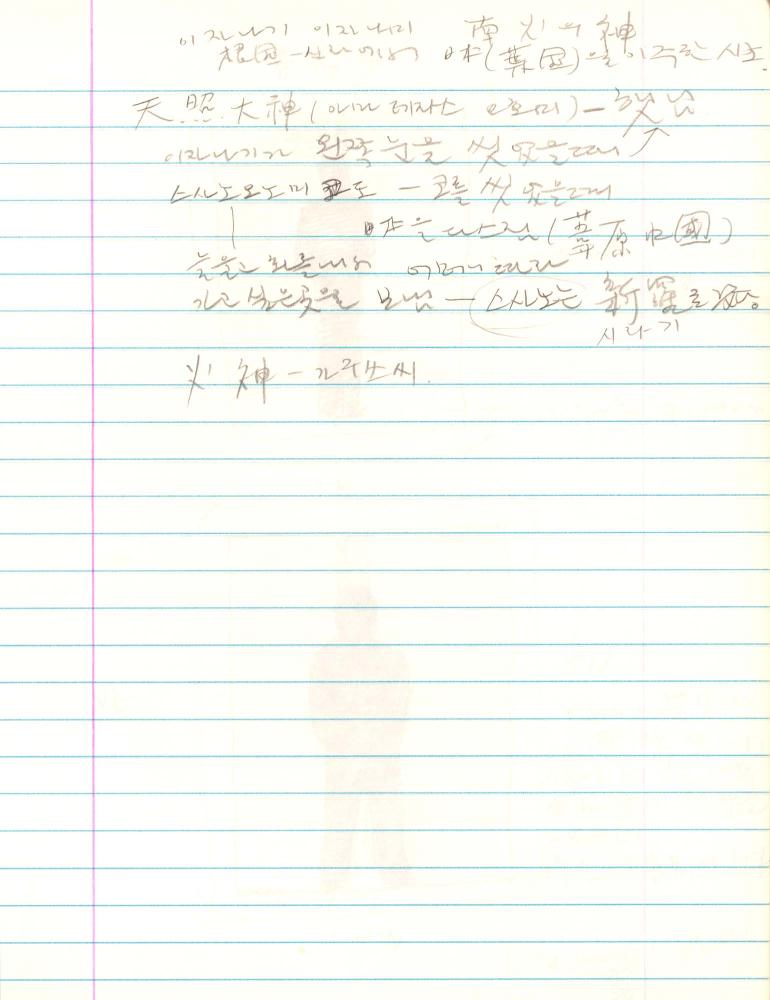 이자나기 이자나미 南 火의 神
根国-신라에서 日本(葉国)을 이주한 시조.
天照大神(아마테라스 오호미)-햇님
이자나기가 왼쪽 눈을 씻었을때
스사노오노미코도 - 코를 씻었을때
日本을 다스림(葦原中国)
눈물과 화를내어 어머니 따라
가고 싶은곳을 보냄 - 스사노는 新羅로 갔음
시라기
火神-가구쓰씨.